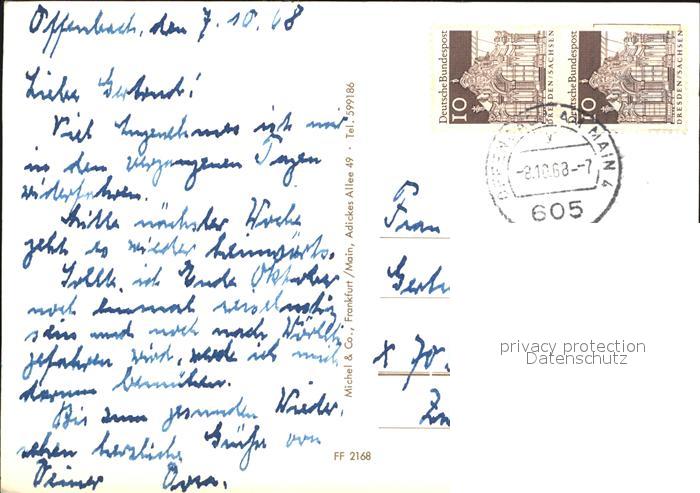 Offenbach, den 7.10.68
Liebe Gertrud!
Viel Angenehmes ist mir
in den vergangenen Tagen
widerfahren.
Mitte nächster Woche
geht es wieder heimwärts.
Sollte ich Ende Oktober
noch einmal
sein und noch nach
gefahren wird, werde ich mich
darum bemühen.
Bis zum gesunden Wieder-
sehen herzliche Grüße von
Deiner
Michel & Co., Frankfurt/Main, Adickes Allee 49 - Tel. 599186
FF 2168
Deutsche Bundespost
10
DRESDEN/SACHSEN
Deutsche Bundespost
10
DRESDEN/SACHSEN
AM MAIN 4
-8.10.68.--7
605
Frau
x 70
privacy protection
Datenschutz